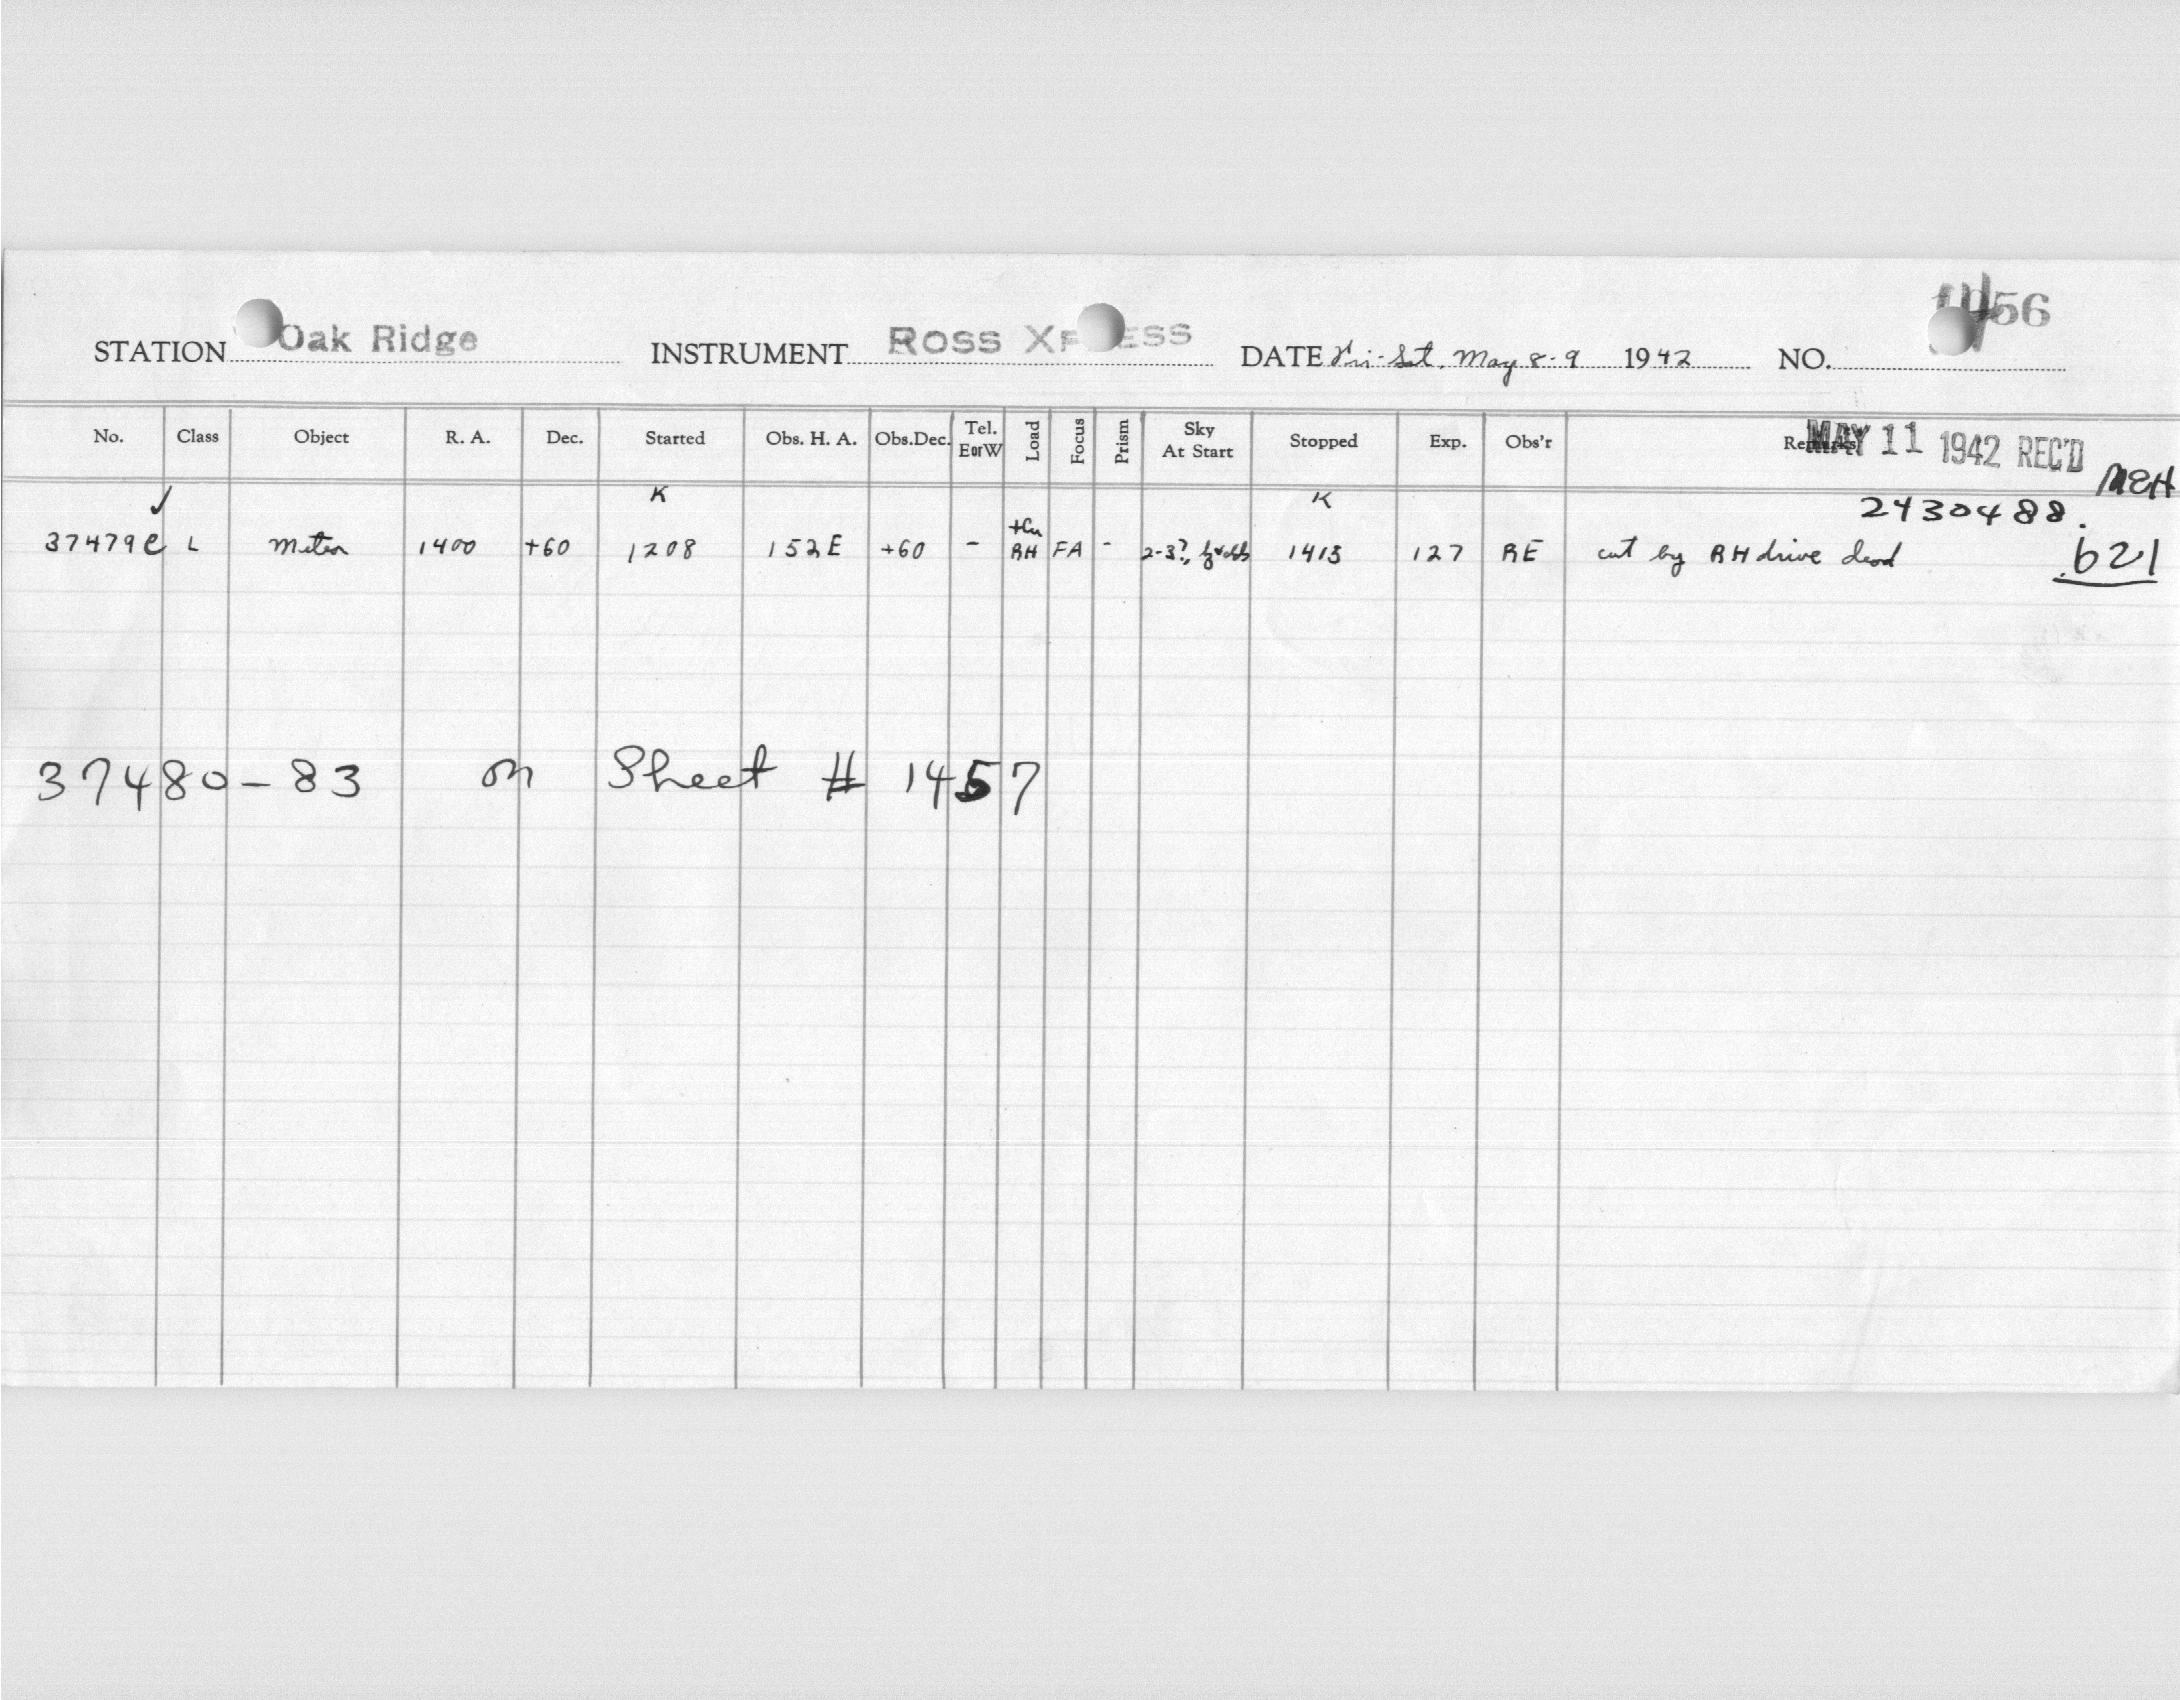 1456
STATION Oak Ridge INSTRUMENT ROSS XPRESS DATE Fri-Sat. May 8-9 1942 NO.
No. Class Object R. A. Dec. Started Obs. H. A. Obs.Dec. Tel. E or W Load Focus Prism Sky At Start Stopped Exp. Obs'r Remarks
MAY 11 1942 REC'D
MEH
✓ K K 2430488.
37479 e L Meteor 1400 +60 1208 152E +60 - RH FA - 2-3?, 1415 127 RE cut by RH drive dead .621
37480-83 on Sheet # 1457